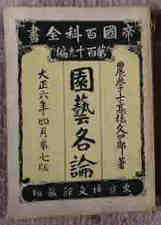 帝國百科全書
第百十九編
農學士喜田茂一郎著
園藝各論
大正六年四月第七版
東京博文館藏版